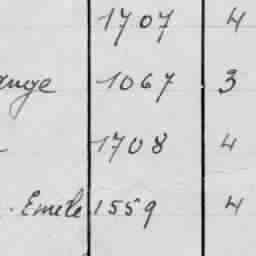 1707 4
1067 3
1708 4
Emele 1559 4